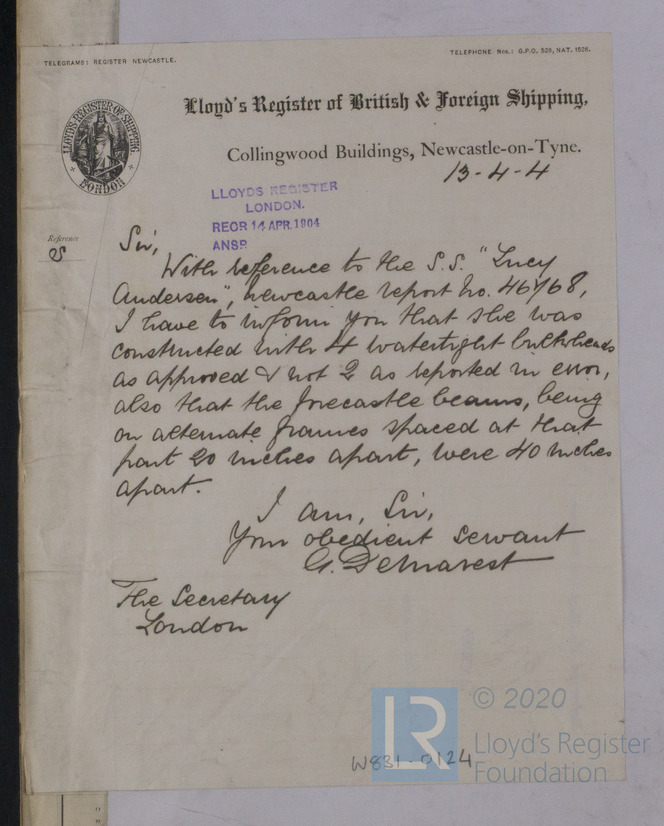 TELEGRAMS: REGISTER NEWCASTLE.
TELEPHONE Nos.: G.P.O. 526, NAT. 1526.
Lloyd's Register of British & Foreign Shipping,
LLOYDS REGISTER OF SHIPPING
LONDON
Collingwood Buildings, Newcastle-on-Tyne.
13-4-4
LLOYDS REGISTER
LONDON.
RECR 14 APR. 1904
ANSR
Reference
Sir,
With reference to the S.S. "Lucy
Andersen", Newcastle report No. 46768,
I have to inform you that she was
constructed with 4 watertight bulkheads
as approved & not 2 as reported in error,
also that the forecastle beams, being
on alternate frames spaced at that
part 20 inches apart, were 40 inches
apart.
I am, Sir,
Your obedient servant
G. Demarest
The Secretary
London
W831-0124
LR
© 2020
Lloyd's Register
Foundation